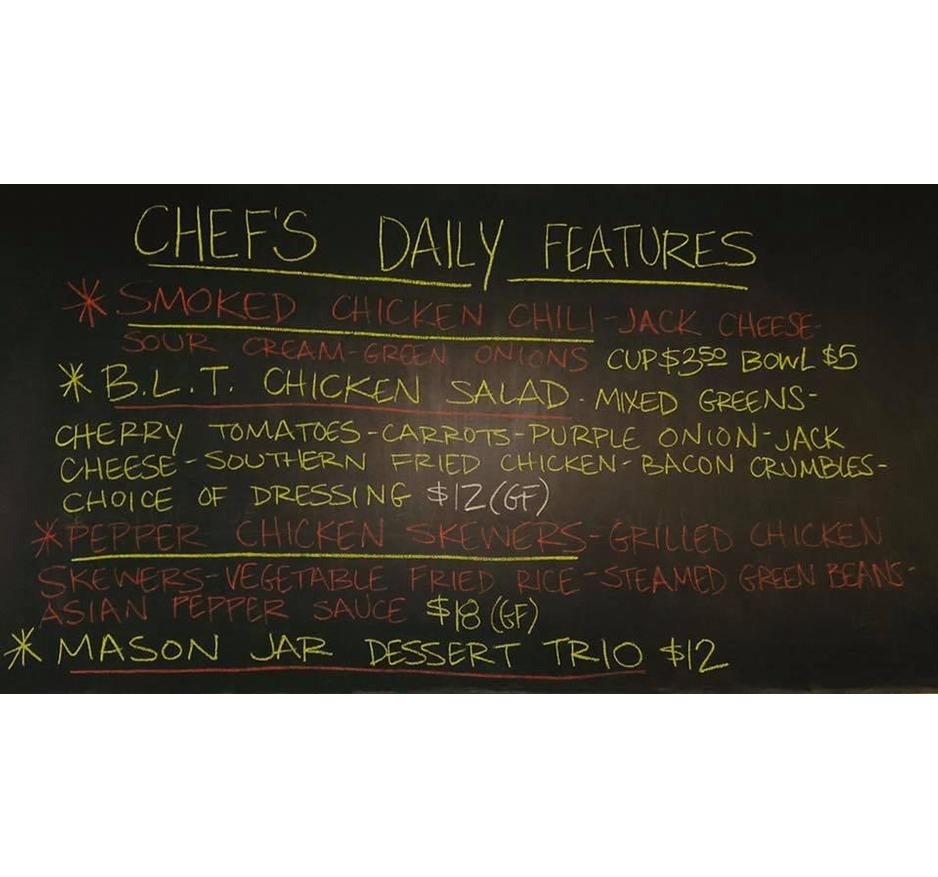 CHEF'S DAILY FEATURES
* SMOKED CHICKEN CHILI-JACK CHEESE-
SOUR CREAM-GREEN ONIONS CUP $3.50 BOWL $5
* B.L.T. CHICKEN SALAD - MIXED GREENS-
CHERRY TOMATOES-CARROTS-PURPLE ONION-JACK
CHEESE-SOUTHERN FRIED CHICKEN-BACON CRUMBLES-
CHOICE OF DRESSING $12 (GF)
* PEPPER CHICKEN SKEWERS-GRILLED CHICKEN
SKEWERS-VEGETABLE FRIED RICE-STEAMED GREEN BEANS-
ASIAN PEPPER SAUCE $18 (GF)
* MASON JAR DESSERT TRIO $12